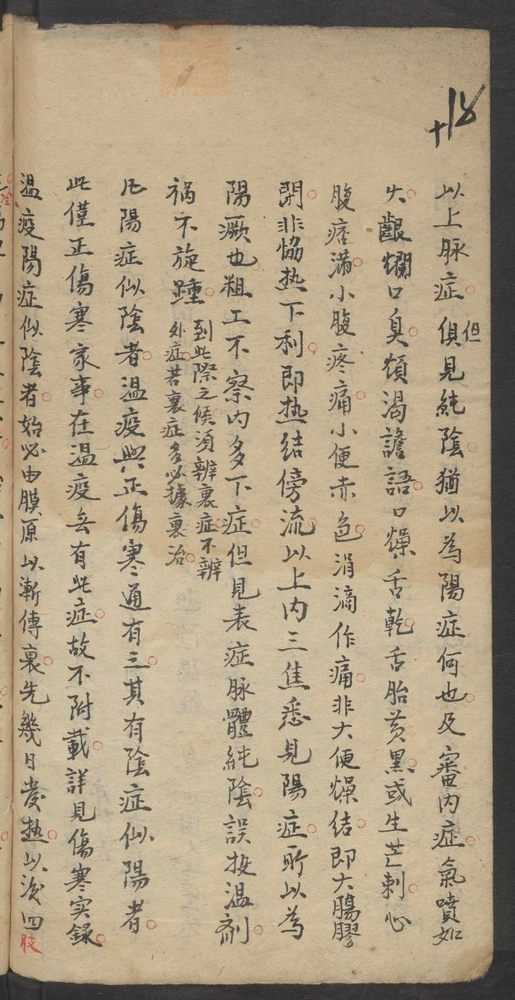 十18
以上脉症但俱見純陰猶以為陽症何也及審内症氣噴如
火齦爛口臭煩渴譫語口燥舌乾舌胎黄黑或生芒刺心
腹痞滿小腹疼痛小便赤色涓滴作痛非大便燥结即大腸膠
閉非恊热下利即热结傍流以上内三焦悉見陽症所以為
陽厥也粗工不察内多下症但見表症脉體純陰誤投温劑
禍不旋踵
到此際之候須辨裏症不辨
外症若裏症多必據裏治
凡陽症似陰者温疫與正傷寒通有之其有陰症似陽者
此僅正傷寒家事在温疫無有此症故不附載詳見傷寒实録
温疫陽症似陰者始必由膜原以漸傳裏先幾日發热以後四肢